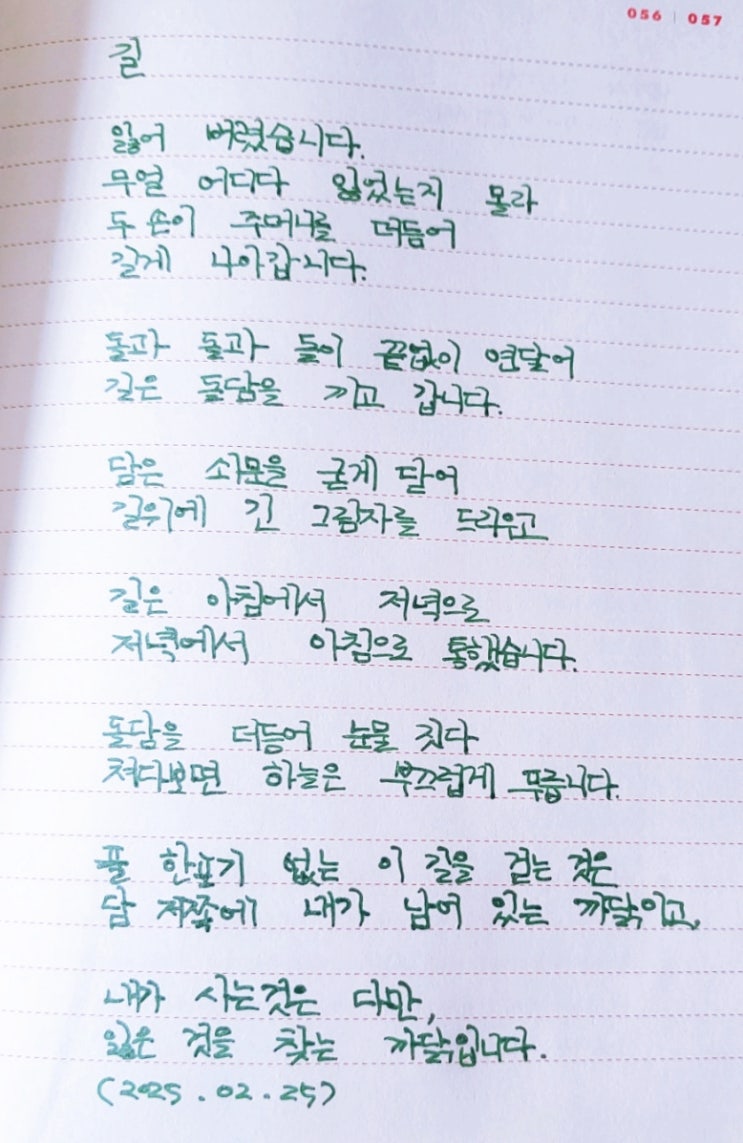 056 | 057
길
잃어 버렸습니다.
무얼 어디다 잃었는지 몰라
두 손이 주머니를 더듬어
길게 나아갑니다.
돌과 돌과 돌이 끝없이 연달어
길은 돌담을 끼고 갑니다.
담은 쇠문을 굳게 닫어
길위에 긴 그림자를 드리우고
길은 아침에서 저녁으로
저녁에서 아침으로 통했습니다.
돌담을 더듬어 눈물 짓다
쳐다보면 하늘은 부끄럽게 푸릅니다.
풀 한포기 없는 이 길을 걷는 것은
담 저쪽에 내가 남어 있는 까닭이고,
내가 사는것은 다만,
잃은 것을 찾는 까닭입니다.
(2025.02.25)